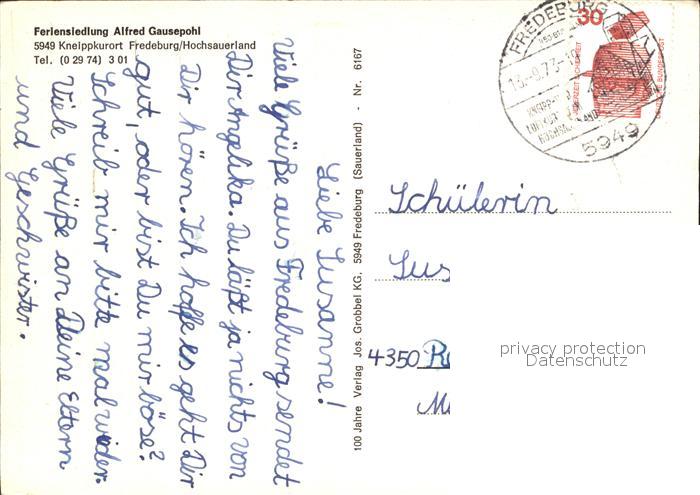 Feriensiedlung Alfred Gausepohl
5949 Kneippkurort Fredeburg/Hochsauerland
Tel. (0 29 74) 3 01
Liebe Susanne!
Viele Grüße aus Fredeburg sendet
Dir Angelika. Du läßt ja nichts von
Dir hören. Ich hoffe es geht Dir
gut, oder bist Du mir böse?
Schreib mir bitte mal wieder.
Viele Grüße an Deine Eltern
und Geschwister.
100 Jahre Verlag Jos. Grobbel KG, 5949 Fredeburg (Sauerland) - Nr. 6167
FREDEBURG
13.-9.73-
5949
30
DEUTSCHE BUNDESPOST
Schülerin
Sus
4350 R
M
privacy protection
Datenschutz